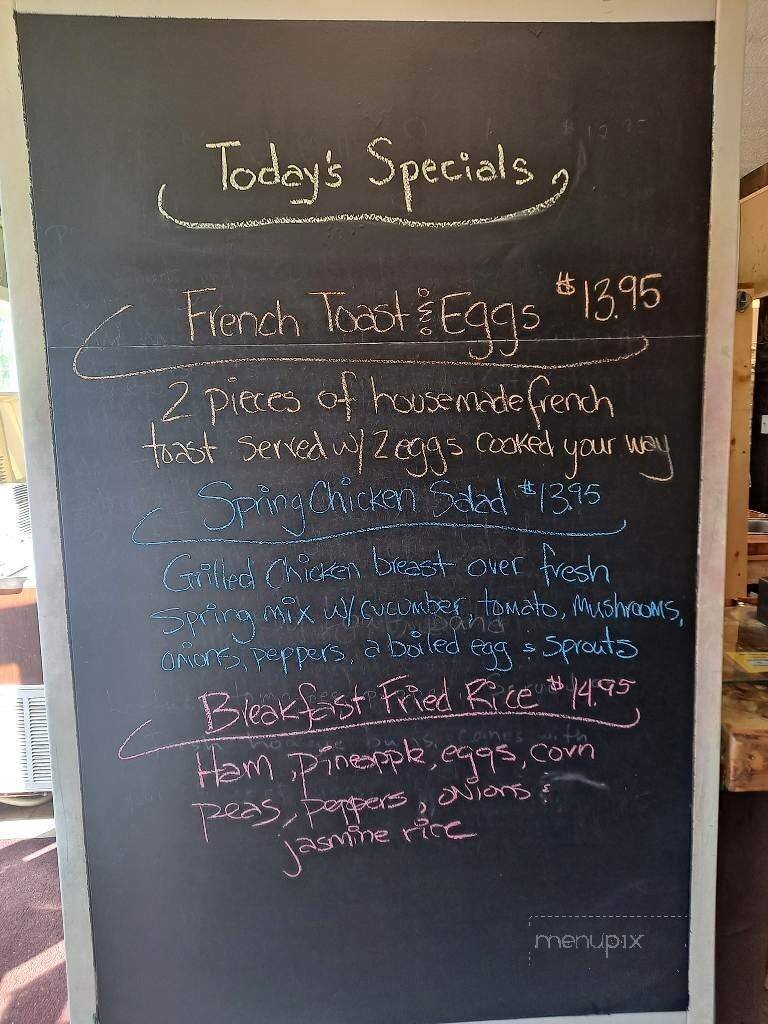 Today's Specials
French Toast & Eggs $13.95
2 pieces of housemade french
toast served w/ 2 eggs cooked your way
Spring Chicken Salad $13.95
Grilled Chicken breast over fresh
Spring mix w/ cucumber, tomato, mushrooms,
onions, peppers, a boiled egg & sprouts
Breakfast Fried Rice $14.95
Ham, pineapple, eggs, corn
peas, peppers, onions &
jasmine rice
menupix